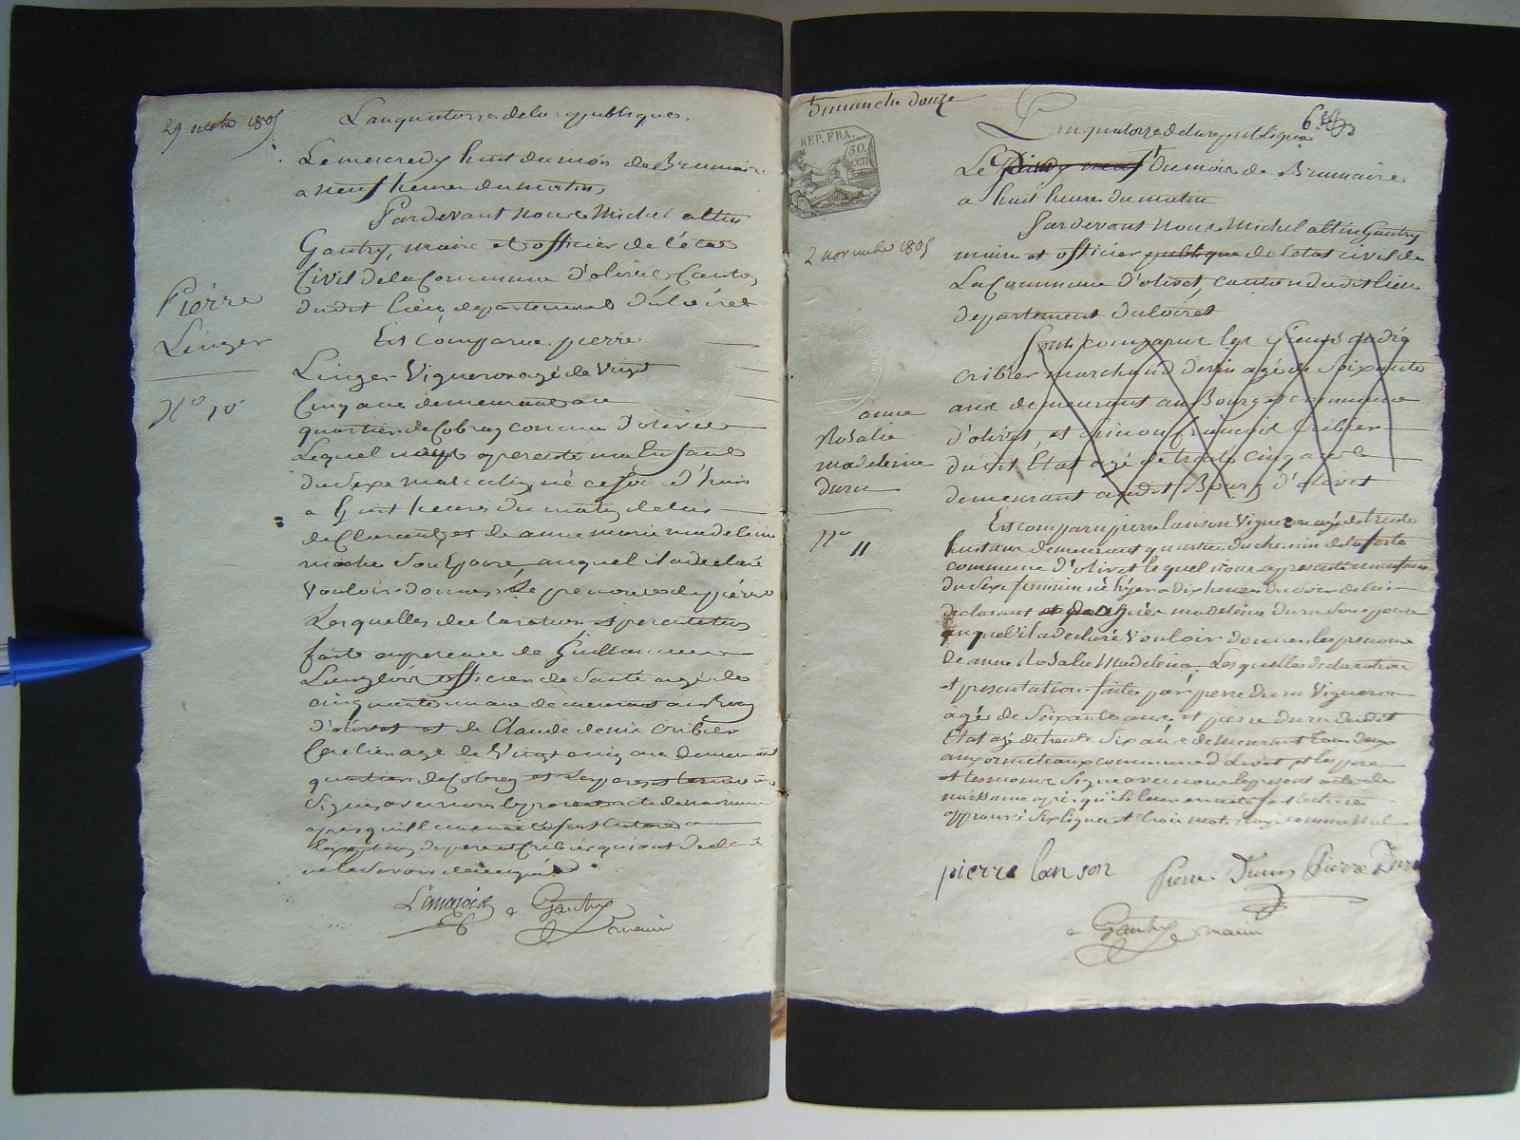 29 octobre 1805
L'an quatorze de la republique.
Le mercredy huit du mois de Brumaire
a neuf heures du matin,
Pardevant nous Michel altin
Gautry, maire et officier de l'état
Civil de la Commune d'olivet, Canton
dudit lieu, departement du Loiret
Est Comparu pierre
Pierre
Linger
N° 10
Linger Vigneron agé de Vingt
Cinq ans demeurant au
quartier de Cobray commune d'olivet
Lequel nous a presenté un Enfant
du Sexe masculin, né ce jour d'huis
a huit heures du matin, de lui
declarant, et de anne marie madeleine
Son Epouse, auquel il a declaré
Vouloir donner Le prenom de pierre
Lesquelles declaration et presentation
faite en presence de Guillaume
officier de Santé agé de
cinquante un ans demeurant au Bourg
d'olivet et de Claude denis cribier
agé de Vingt cinq ans demeurant
quartier de Cobray et les pere et temoins ont
Signé avec nous le present acte de naissance
apres qu'il leur en a été fait lecture
Gautry
maire
Dimanche douze
L'an quatorze de la republique
6
REP. FRA.
50.
Le du mois de Brumaire
a huit heures du matin
2 novembre 1805
Pardevant nous Michel altin Gautry
maire et officier publique de l'etat civil de
La Commune d'olivet, canton dudit lieu
departement du loiret
Sont comparut les Sieurs andré
cribier marchand de vin agé de Soixante
ans demeurant au Bourg et commune
d'olivet, et Simon francois Cribier
dudit Etat agé de trente cinq ans
demeurant audit Bourg d'olivet
anne
Rosalie
madeleine
duru
N°
11
Est comparu pierre lanson Vigneron agé de trente
huit ans demeurant quartier du chemin de la ferté
commune d'olivet lequel nous a presenté un enfant
du Sexe feminin né hier a dix heures du Soir de lui
declarant et de madeleine duru Son epouse
auquel il a declaré Vouloir donner les prenoms
de anne Rosalie Madeleine, Lesquelles declaration
et presentation faites par pierre duru Vigneron
agé de Soixante ans, et pierre duru dudit
Etat agé de trente Six ans demeurant tous deux
aux ormeteaux commune d'olivet et les pere
et temoins Signé avec nous le present acte de
naissance apres qu'il leur en a été fait lecture
approuvé Six lignes et trois mots rayé comme nul
pierre lanson
Pierre Duru
Pierre Duru
Gautry
maire